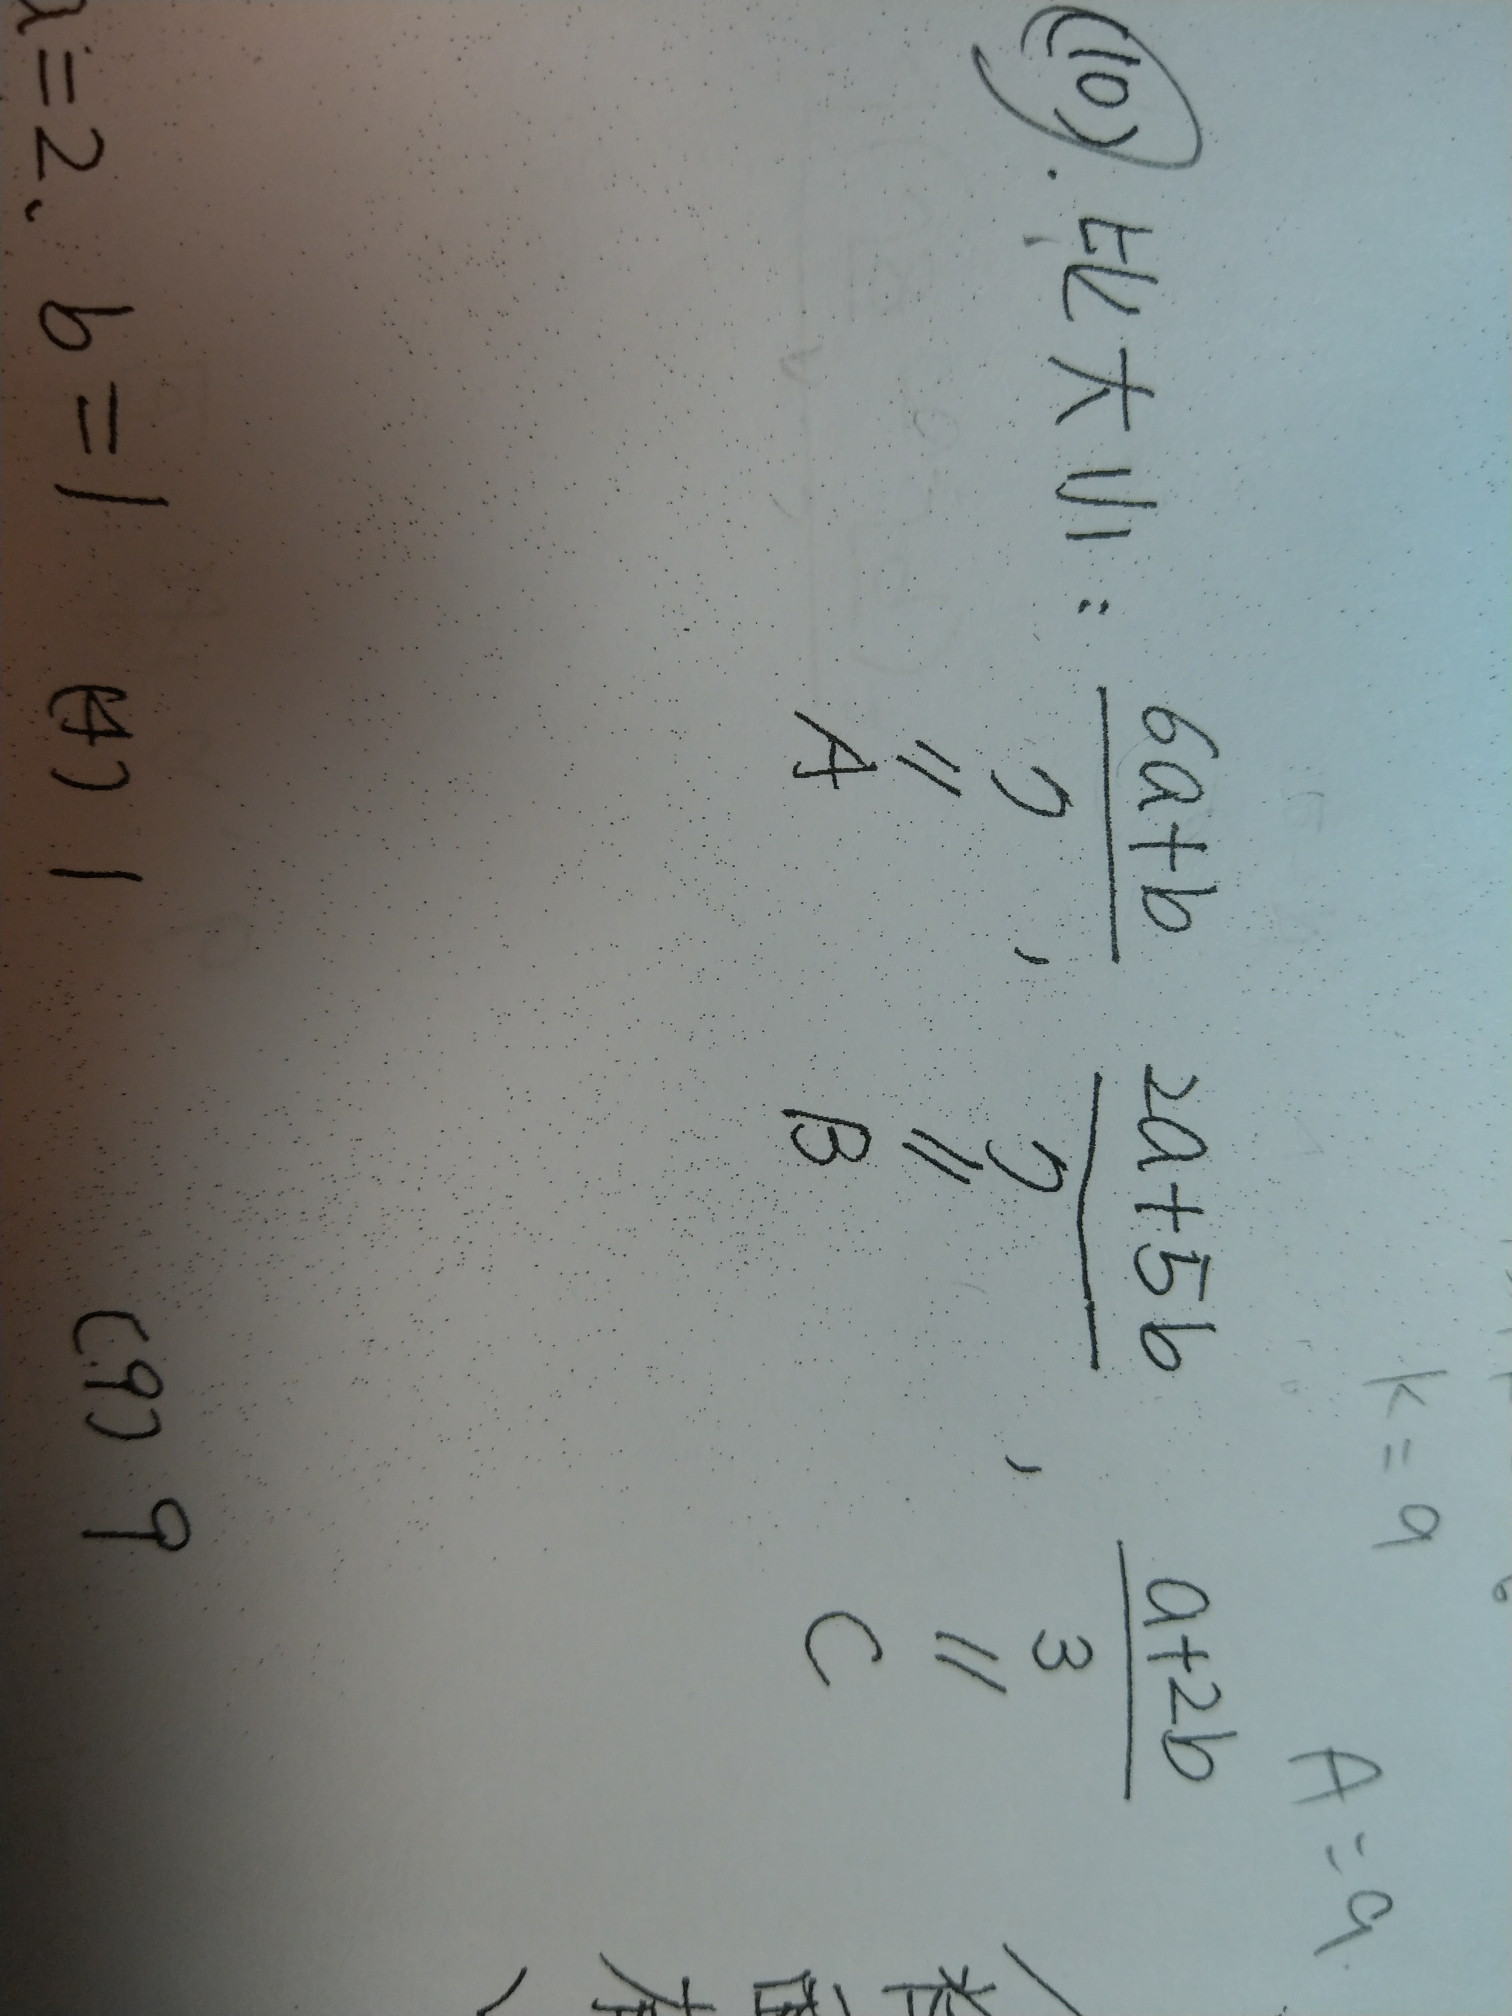 k=a
A=a
(10). 比大小: 6a+b/7, 2a+5b/7, a+2b/3
= = =
A B C
a=2、b=1 (4) 1 (9) 9